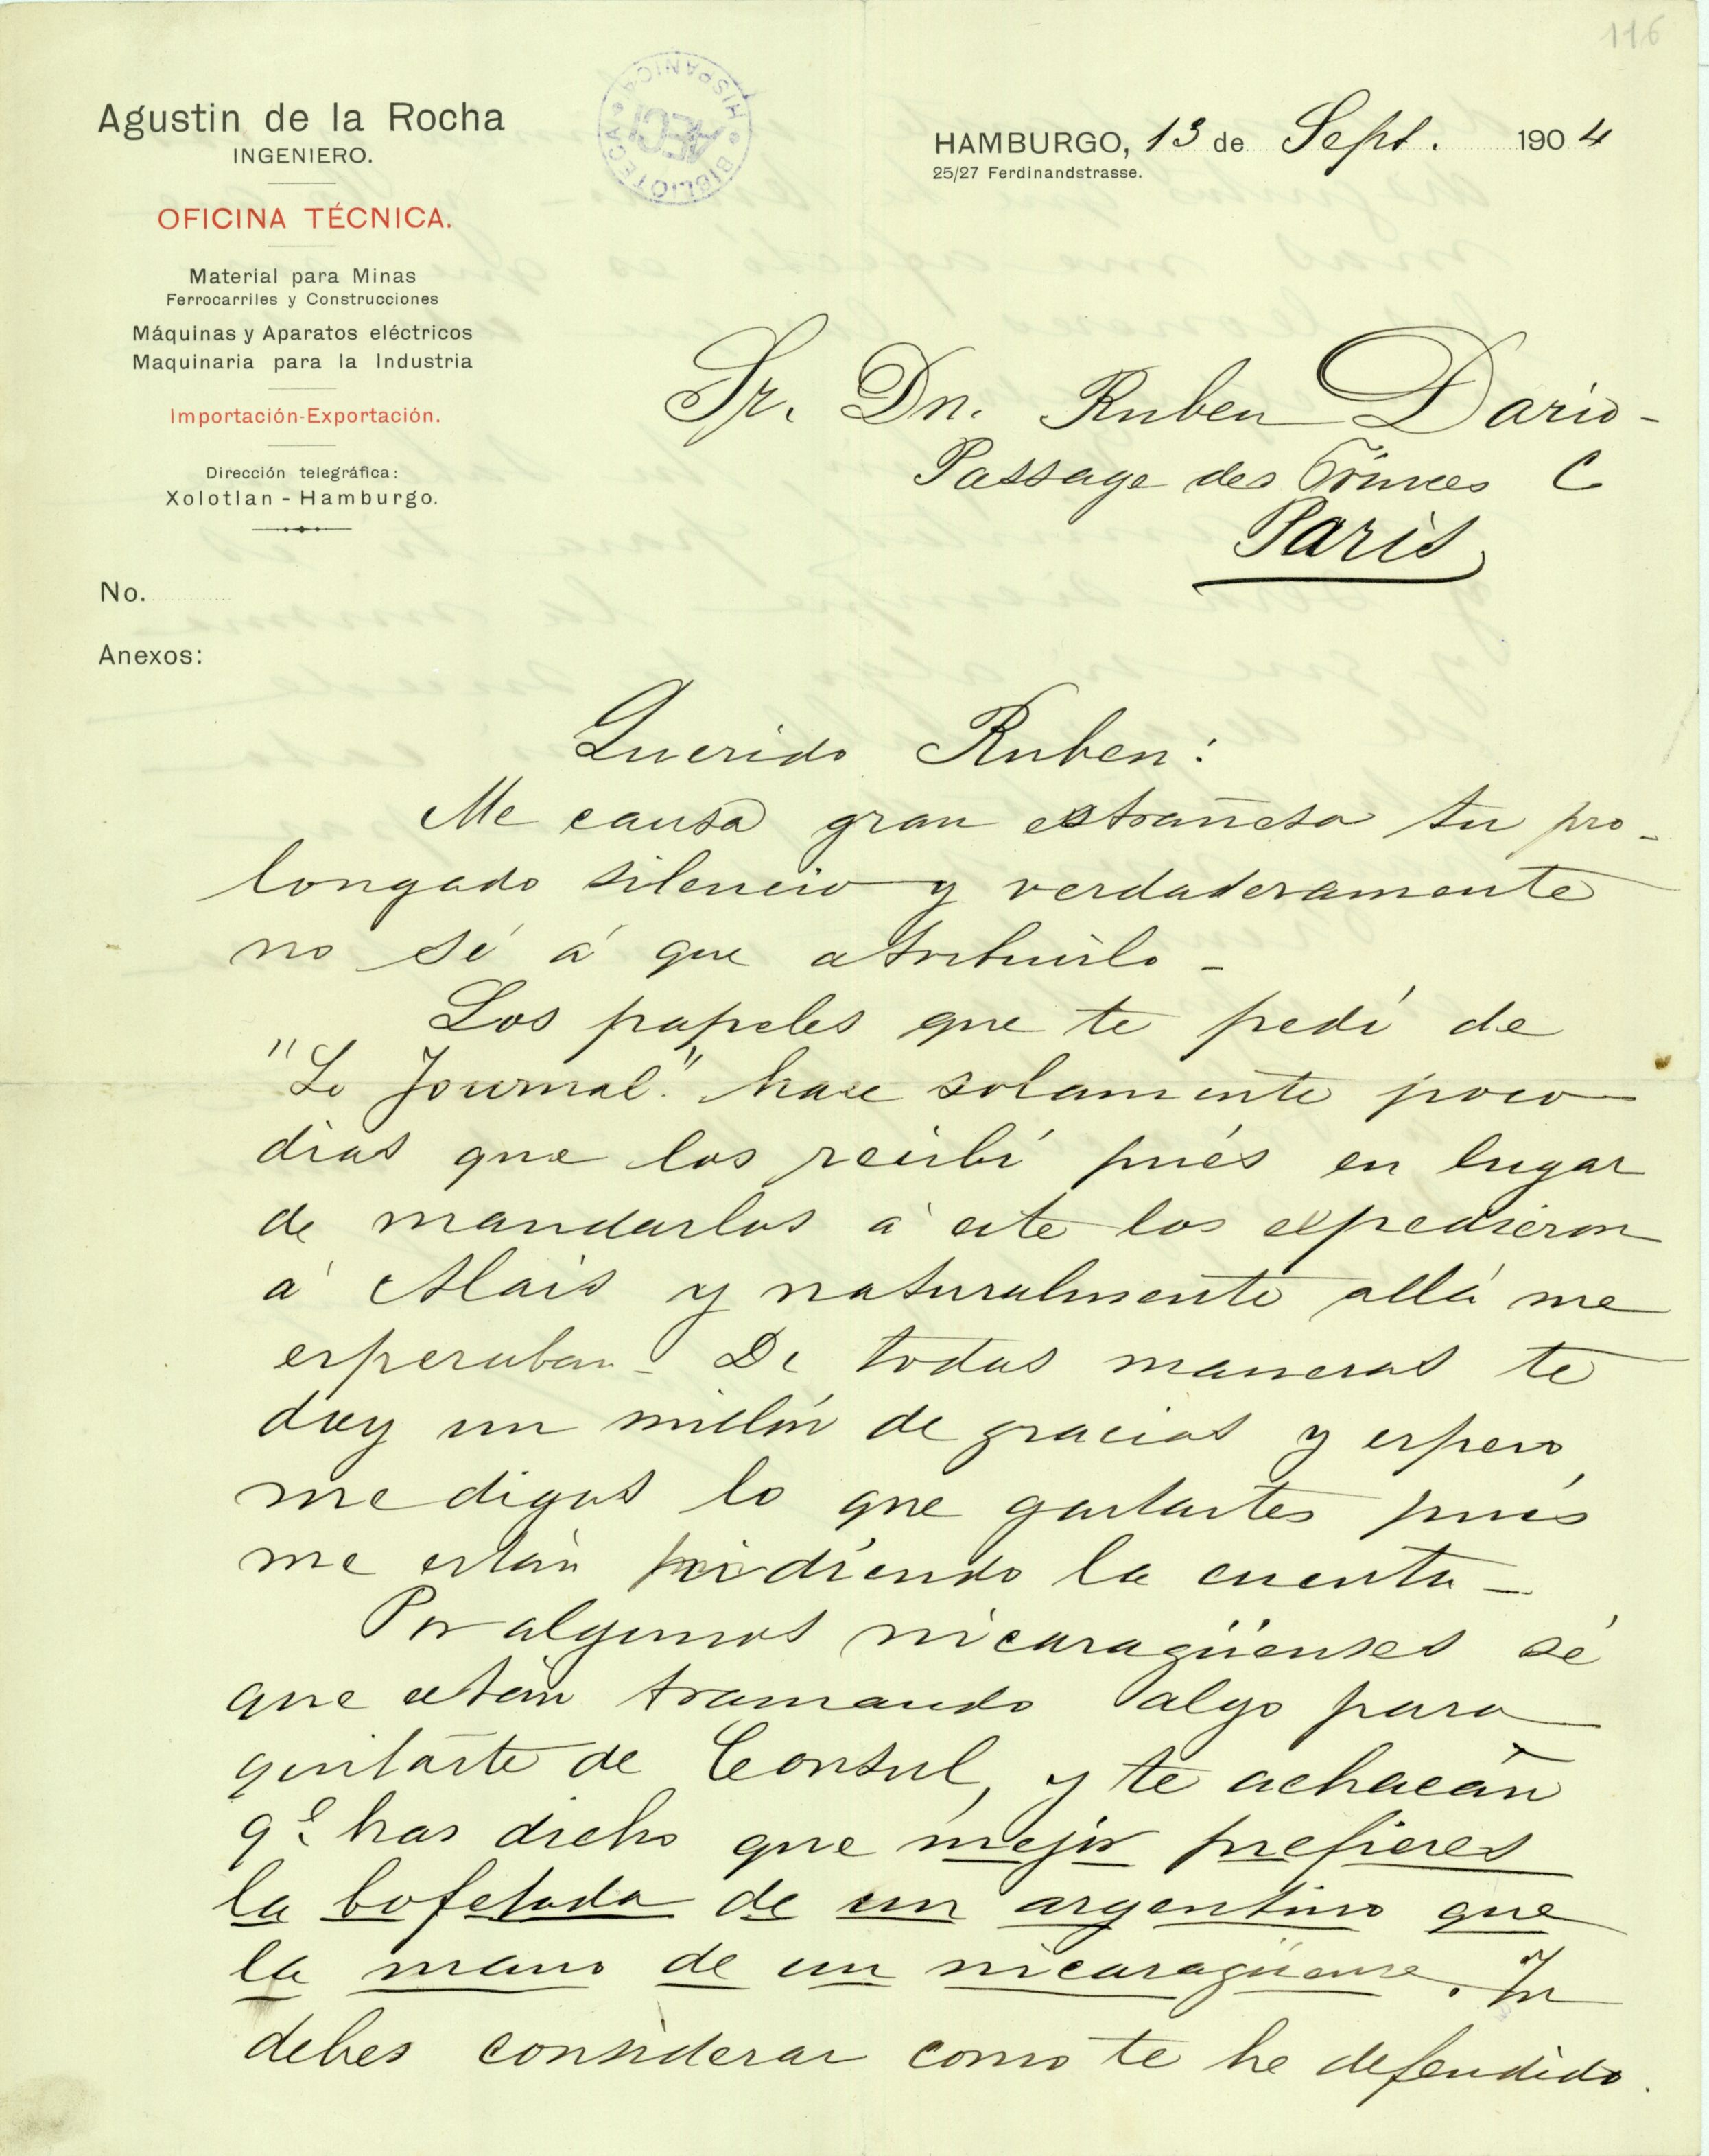 116
Agustin de la Rocha
INGENIERO.
OFICINA TÉCNICA.
Material para Minas
Ferrocarriles y Construcciones
Máquinas y Aparatos eléctricos
Maquinaria para la Industria
Importación-Exportación.
Dirección telegráfica:
Xolotlan - Hamburgo.
No.
Anexos:
BIBLIOTECA HISPANICA
AECI
HAMBURGO, 13 de Sept. 1904
25/27 Ferdinandstrasse.
Sr. Dn. Ruben Dario -
Passage des Princes C
Paris
Querido Ruben:
Me causa gran estrañesa tu pro-
longado silencio y verdaderamente
no sé á que atribuirlo -
Los papeles que te pedí de
"Le Journal." hace solamente poco
dias que los recibí pués en lugar
de mandarlos á este los expedieron
á Alais y naturalmente allá me
esperaban - De todas maneras te
doy un millón de gracias y espero
me digas lo que gastastes pués
me están pidiendo la cuenta -
Por algunos nicaragüenses sé
que están tramando algo para
quitarte de Consul, y te achacán
qe. has dicho que mejor prefieres
la bofetada de un argentino que
la mano de un nicaragüense. Tu
debes considerar como te he defendido.